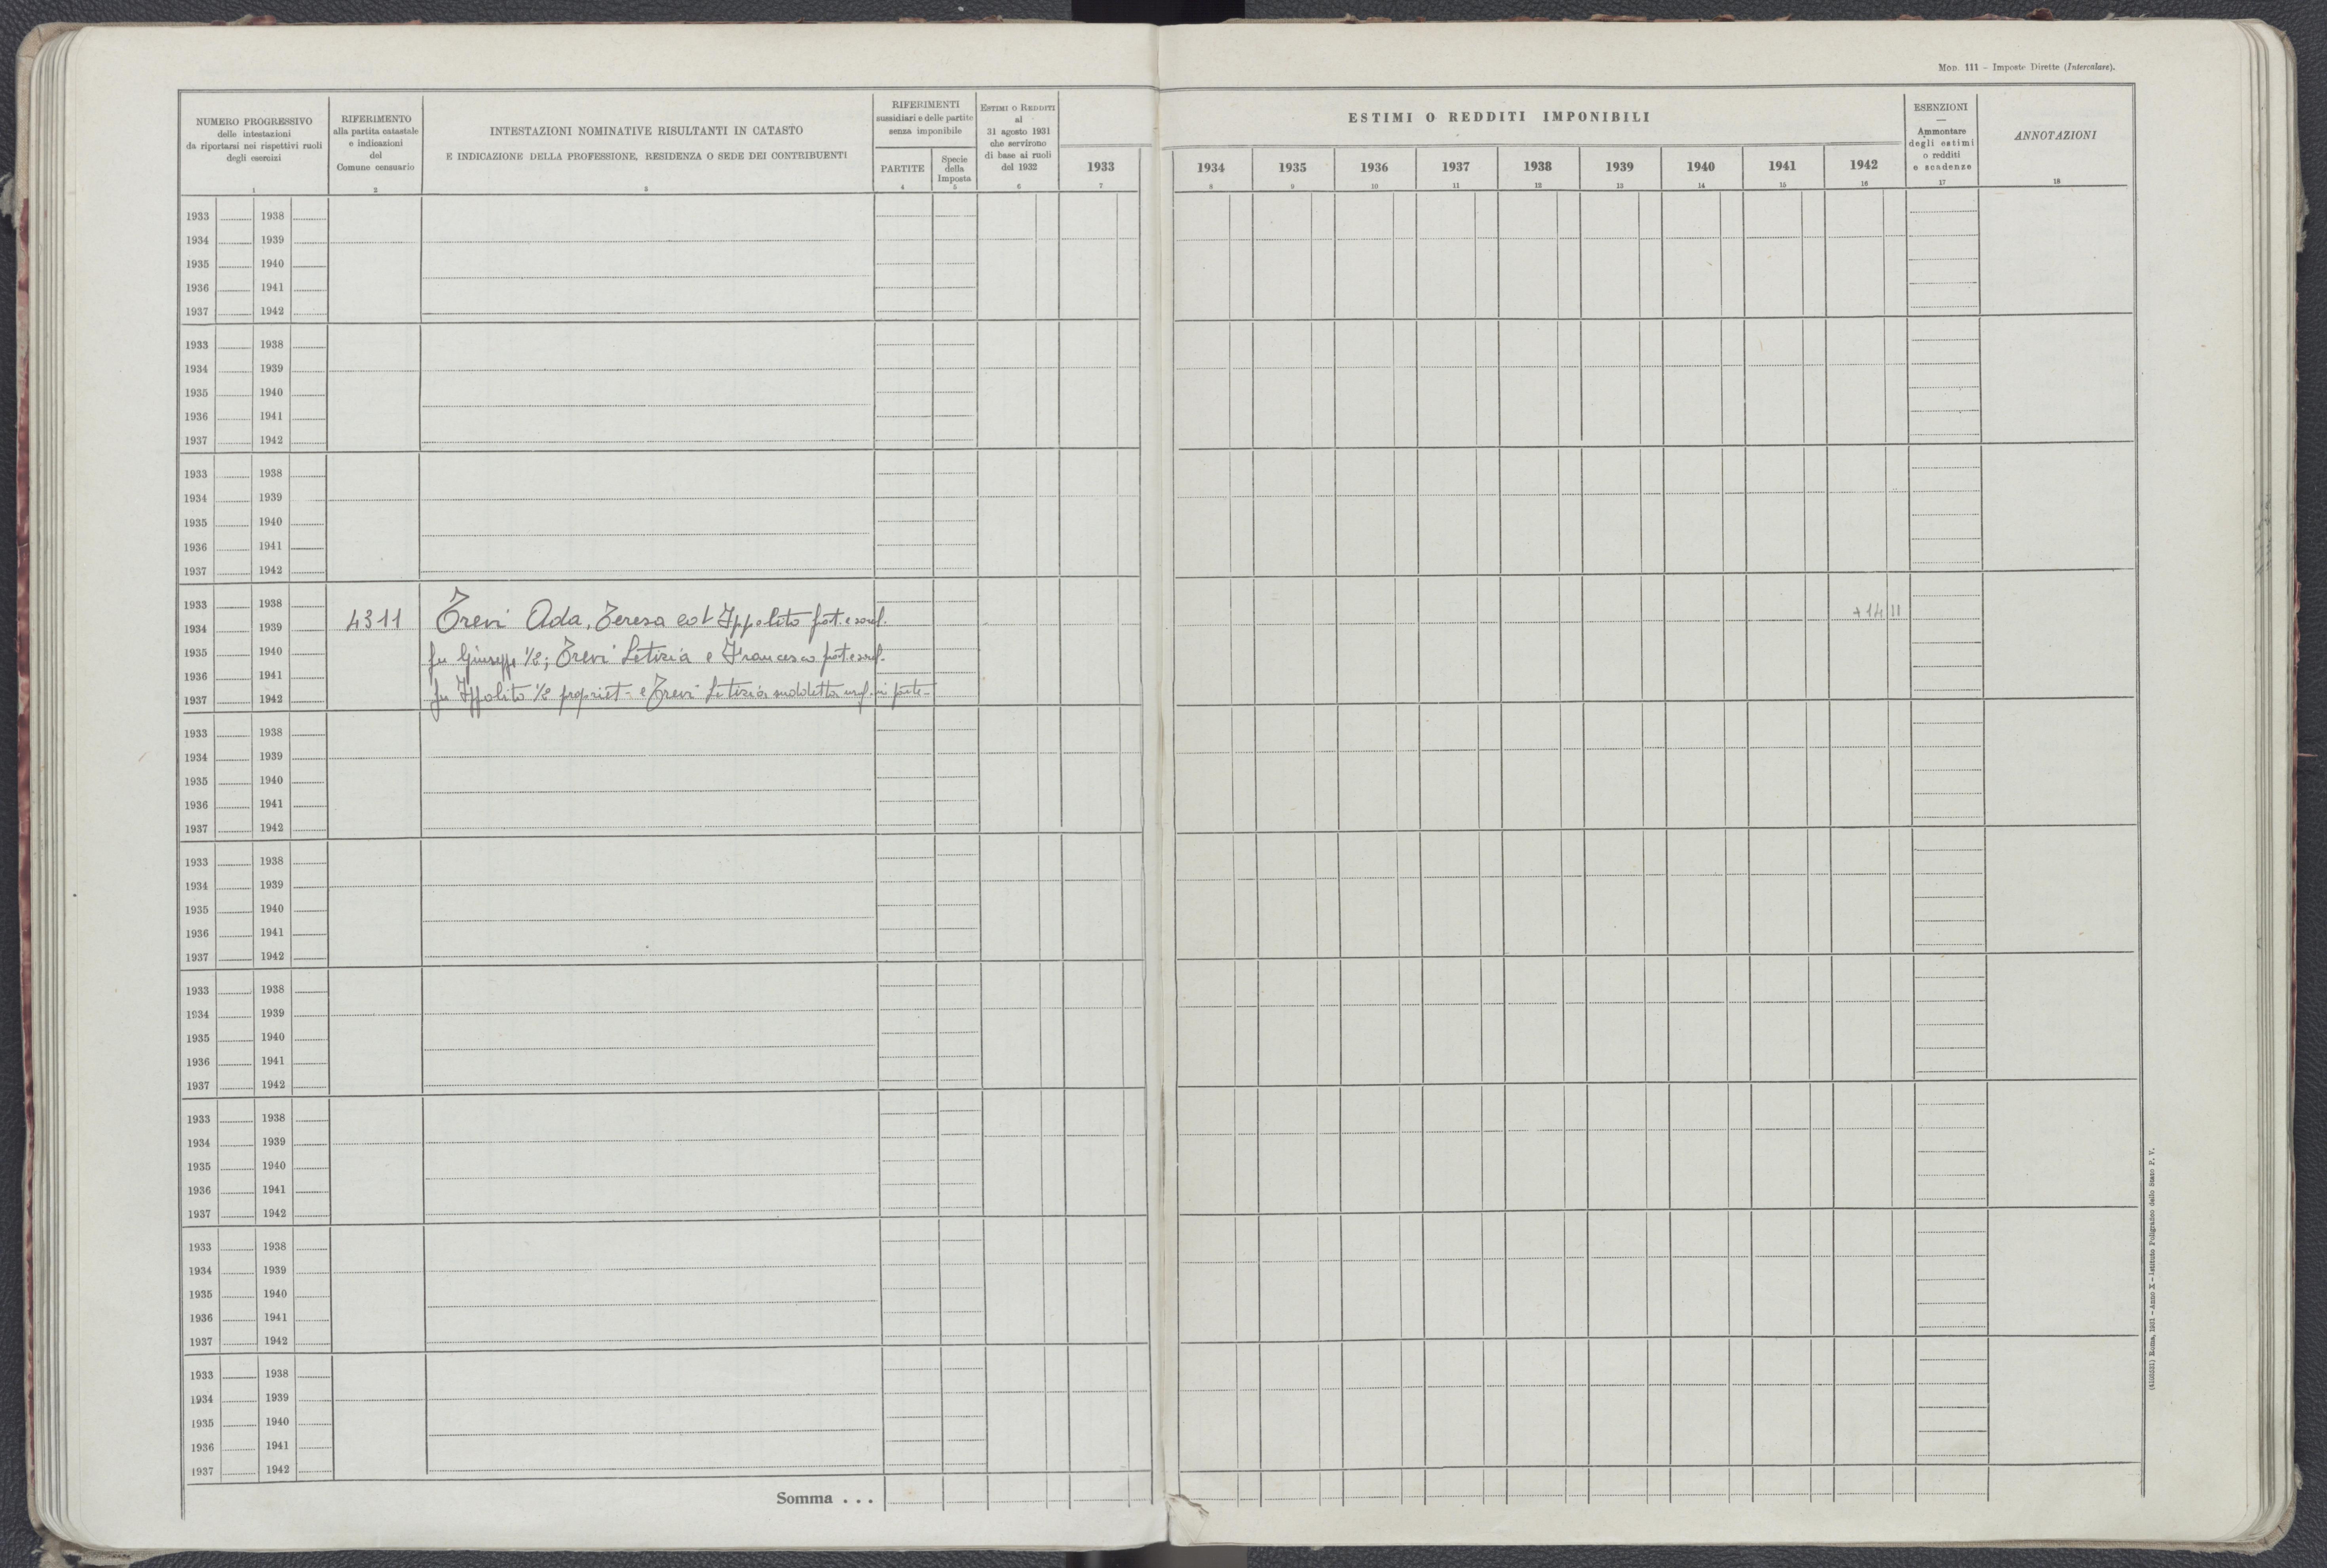 Mod. 111 – Imposte Dirette (Intercalare).
NUMERO PROGRESSIVO
delle intestazioni
da riportarsi nei rispettivi ruoli
degli esercizi
1
RIFERIMENTO
alla partita catastale
e indicazioni
del
Comune censuario
2
INTESTAZIONI NOMINATIVE RISULTANTI IN CATASTO
E INDICAZIONE DELLA PROFESSIONE, RESIDENZA O SEDE DEI CONTRIBUENTI
3
RIFERIMENTI
sussidiari e delle partite
senza imponibile
PARTITE
4
Specie
della
Imposta
5
Estimi o Redditi
al
31 agosto 1931
che servirono
di base ai ruoli
del 1932
6
ESTIMI O REDDITI IMPONIBILI
1933 1934 1935 1936 1937 1938 1939 1940 1941 1942
7 8 9 10 11 12 13 14 15 16
ESENZIONI
—
Ammontare
degli estimi
o redditi
e scadenze
17
ANNOTAZIONI
18
1933 1938
1934 1939
1935 1940
1936 1941
1937 1942
1933 1938
1934 1939
1935 1940
1936 1941
1937 1942
1933 1938
1934 1939
1935 1940
1936 1941
1937 1942
1933 1938
1934 1939
1935 1940
1936 1941
1937 1942
4311
Trevi Ada, Teresa ed Ippolito frat. e sorel.
fu Giuseppe 1/2; Trevi Letizia e Francesco frat. e sorel.
fu Ippolito 1/2 propriet- e Trevi Letizia suddetta usuf. in parte-
+14 11
1933 1938
1934 1939
1935 1940
1936 1941
1937 1942
1933 1938
1934 1939
1935 1940
1936 1941
1937 1942
1933 1938
1934 1939
1935 1940
1936 1941
1937 1942
1933 1938
1934 1939
1935 1940
1936 1941
1937 1942
1933 1938
1934 1939
1935 1940
1936 1941
1937 1942
1933 1938
1934 1939
1935 1940
1936 1941
1937 1942
Somma . . .
Roma, 1931 – Anno X – Istituto Poligrafico dello Stato P. V.